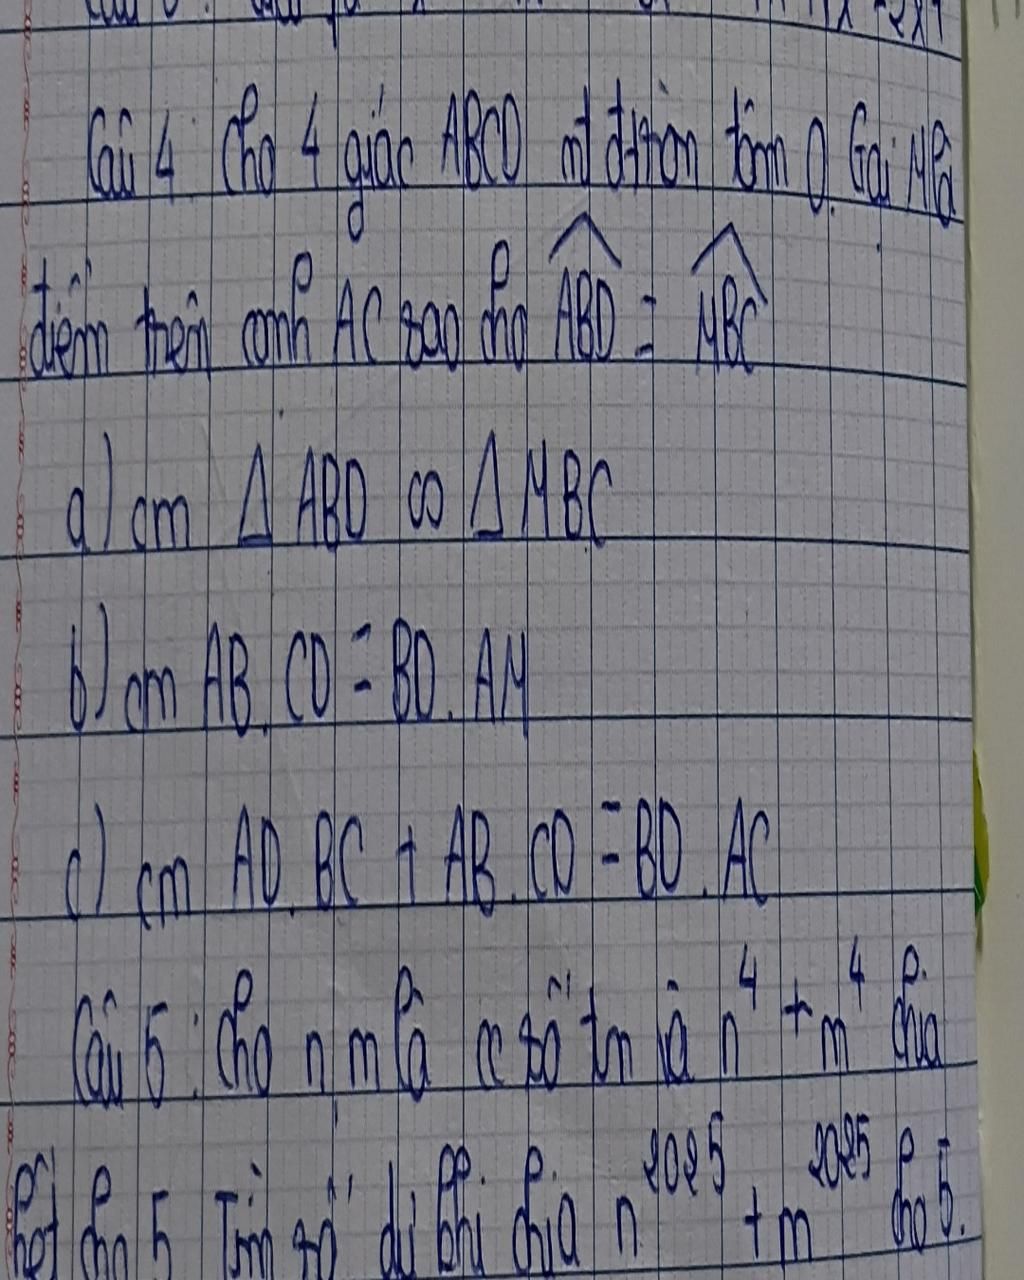 Câu 4 Cho 4 giác ABCD nt đtròn tâm O. Gọi M là
điểm trên cạnh AC sao cho ABD = MBC
a) cm Δ ABD ∽ Δ MBC
b) cm AB. CD = BD. AM
c) cm AD. BC + AB. CD = BD. AC
Câu 5: Cho n m là cc số tn và n⁴ + m⁴ chia
hết cho 5 Tìm số dư khi chia n²⁰²⁵ + m²⁰²⁵ cho 5.